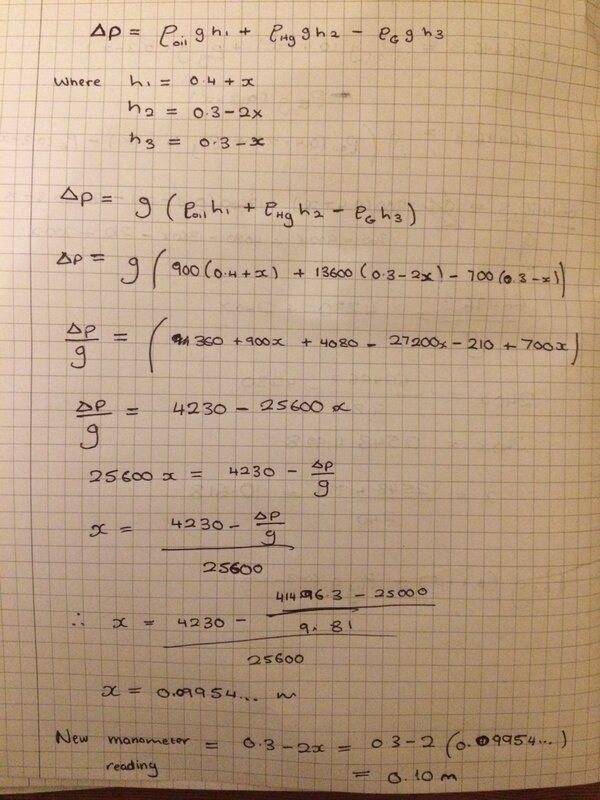 ΔP = ρoil g h1 + ρHg g h2 − ρG g h3
Where h1 = 0.4 + x
h2 = 0.3 − 2x
h3 = 0.3 − x
ΔP = g (ρoil h1 + ρHg h2 − ρG h3)
ΔP = g (900(0.4+x) + 13600(0.3−2x) − 700(0.3−x))
ΔP/g = (360 + 900x + 4080 − 27200x − 210 + 700x)
ΔP/g = 4230 − 25600x
25600x = 4230 − ΔP/g
x = (4230 − ΔP/g) / 25600
∴ x = (4230 − (41496.3 − 25000)/9.81) / 25600
x = 0.09954... m
New manometer reading = 0.3 − 2x = 0.3 − 2(0.09954...)
= 0.10 m